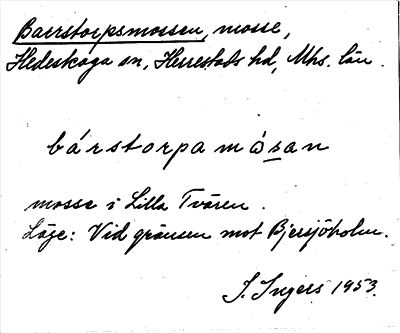 Barrstorpsmossen, mosse,
Hedeskoga sn, Herrestads hd, Mhs. län.
bárstorpa mósan
mosse i Lilla Tvären.
Läge: Vid gränsen mot Bjersjöholm.
I. Ingers 1953.